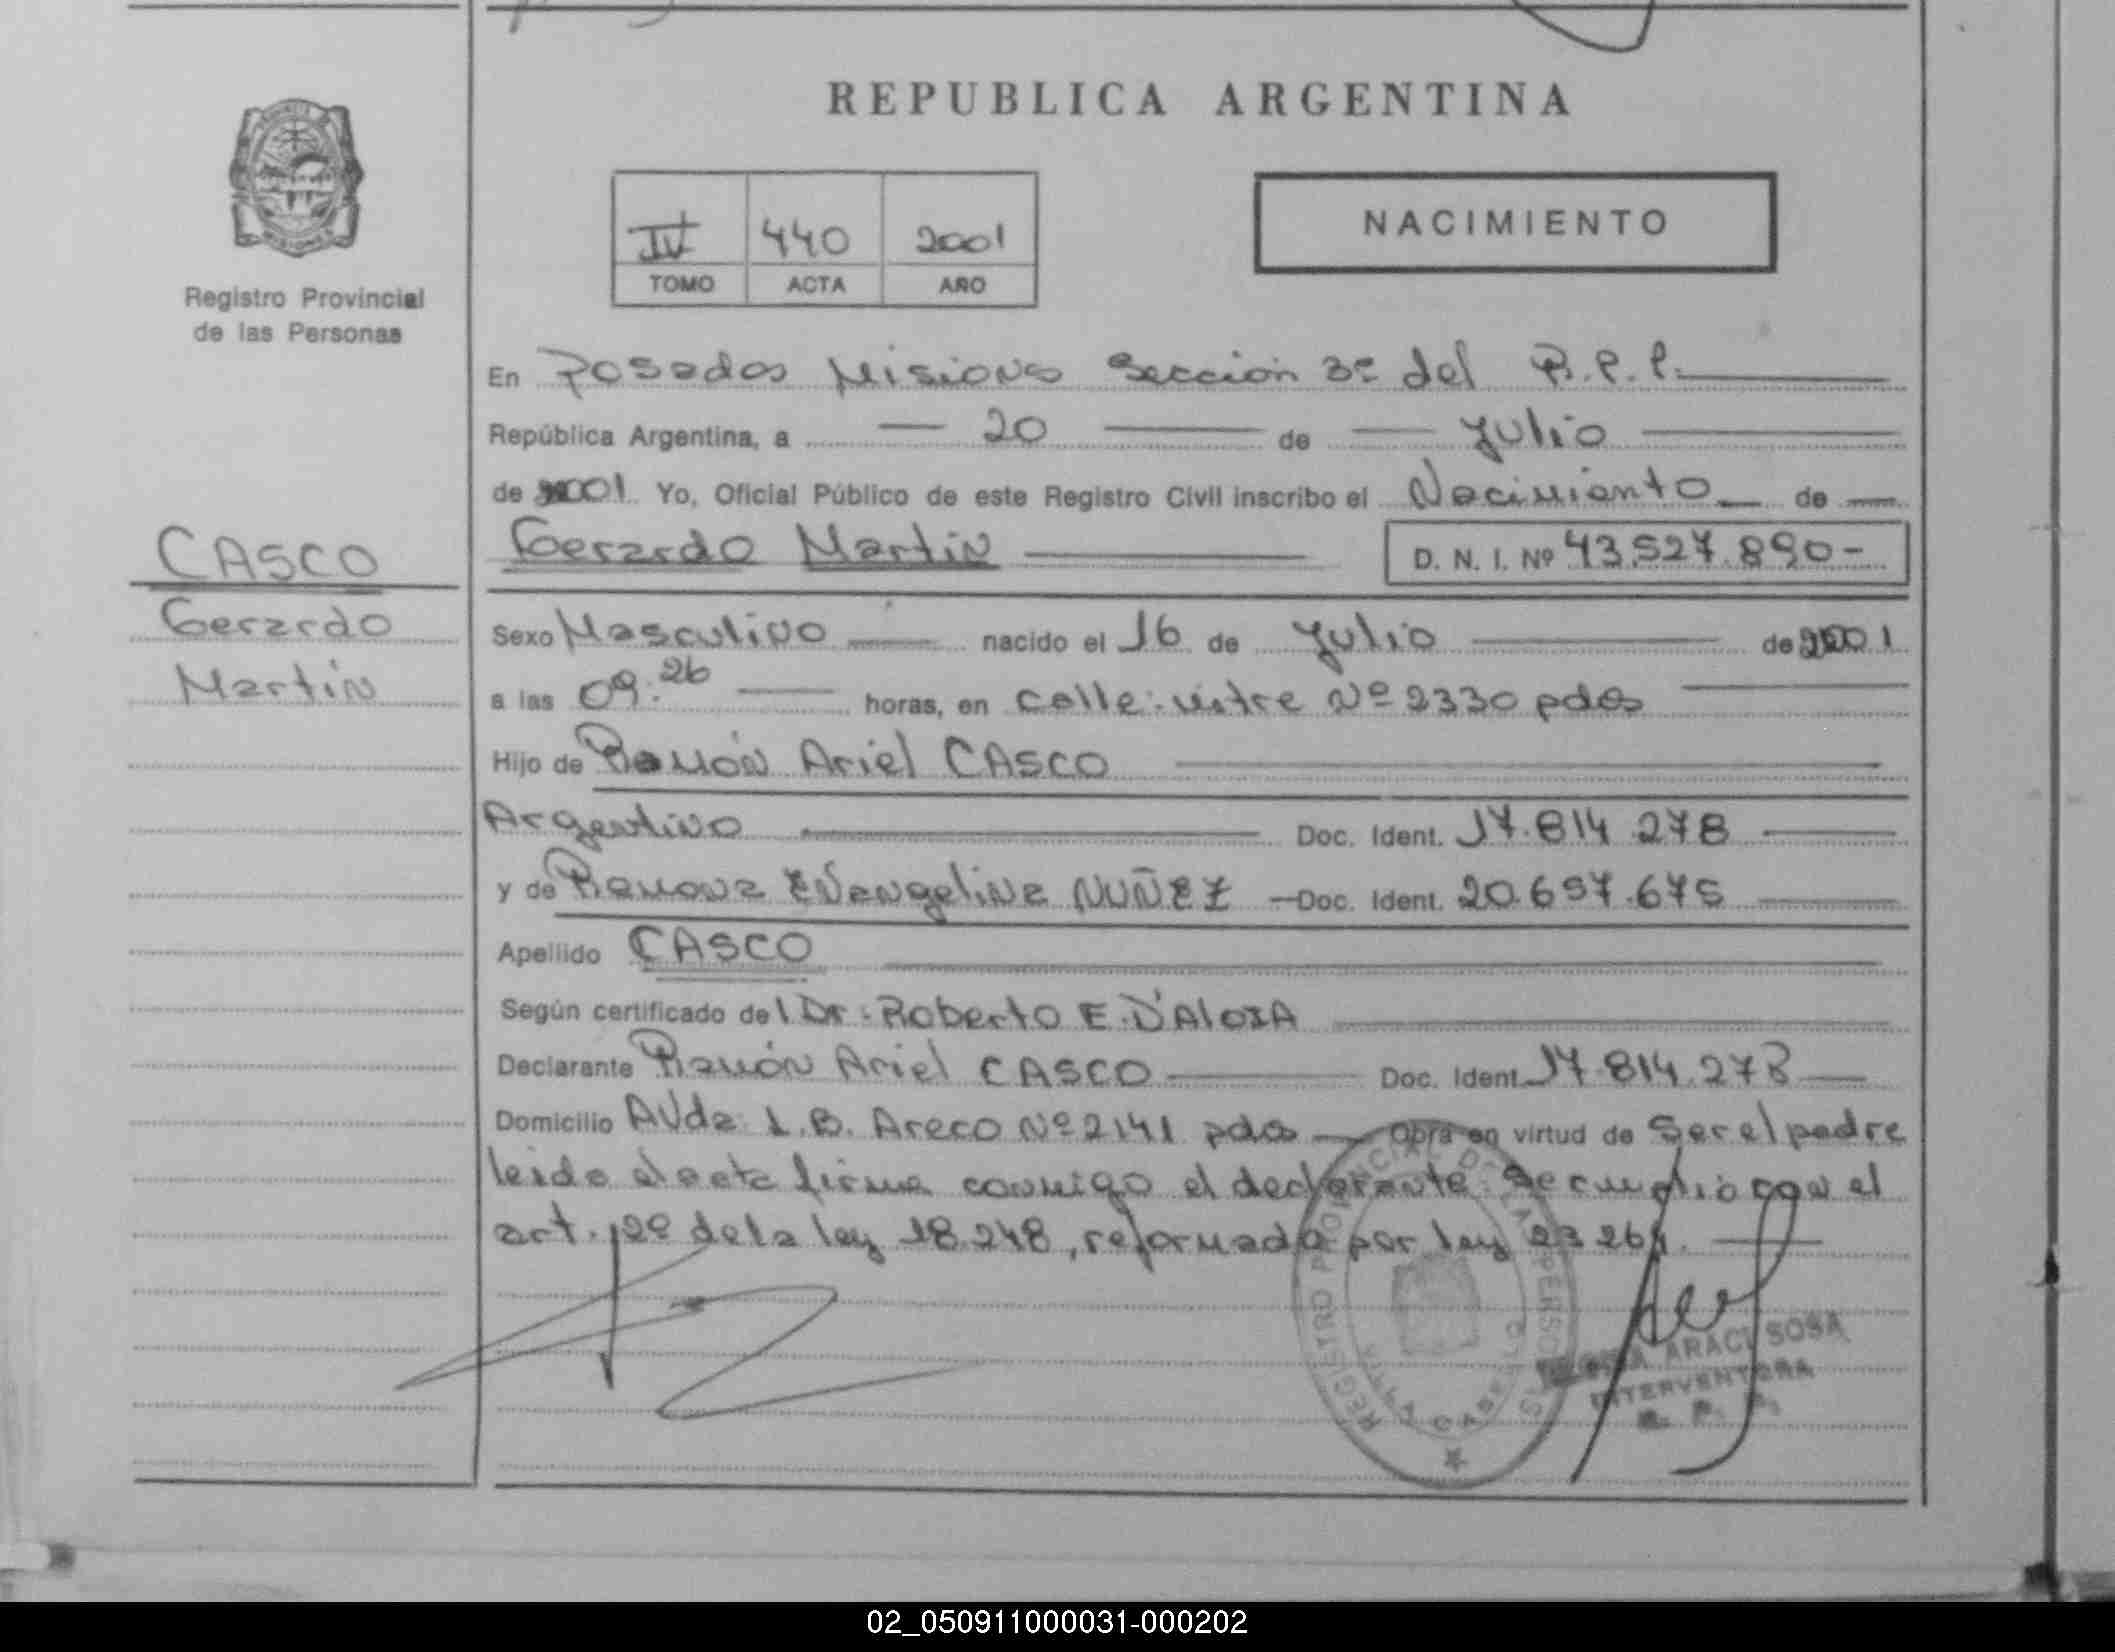 REPUBLICA ARGENTINA
IV 440 2001
TOMO ACTA AÑO
NACIMIENTO
Registro Provincial
de las Personas
En Posadas Misiones Sección 3º del R.P.P.
República Argentina, a 20 de Julio
de 2001 Yo, Oficial Público de este Registro Civil inscribo el Nacimiento de
Gerardo Martin D. N. I. Nº 43.527.890-
CASCO
Gerardo
Martin
Sexo Masculino nacido el 16 de Julio de 2001
a las 09:26 horas, en calle: Nº 2330 pdas
Hijo de Ramón Ariel CASCO
Argentino Doc. Ident. 17.814.278
y de Ramona Evangelina NUÑEZ Doc. Ident. 20.697.675
Apellido CASCO
Según certificado del Dr. Roberto E. D'AloIA
Declarante Ramón Ariel CASCO Doc. Ident. 17.814.278
Domicilio AVda. L.B. Areco Nº 2141 pdas Obra en virtud de Ser el padre
leida el acta firma conmigo el declarante. Se cumplio con el
art. 12º de la ley 18.248, reformada por ley 23.264.
REGISTRO PROVINCIAL DE LAS PERSONAS
ARACI SOSA
INTERVENTORA
R. P. P.
02_050911000031-000202